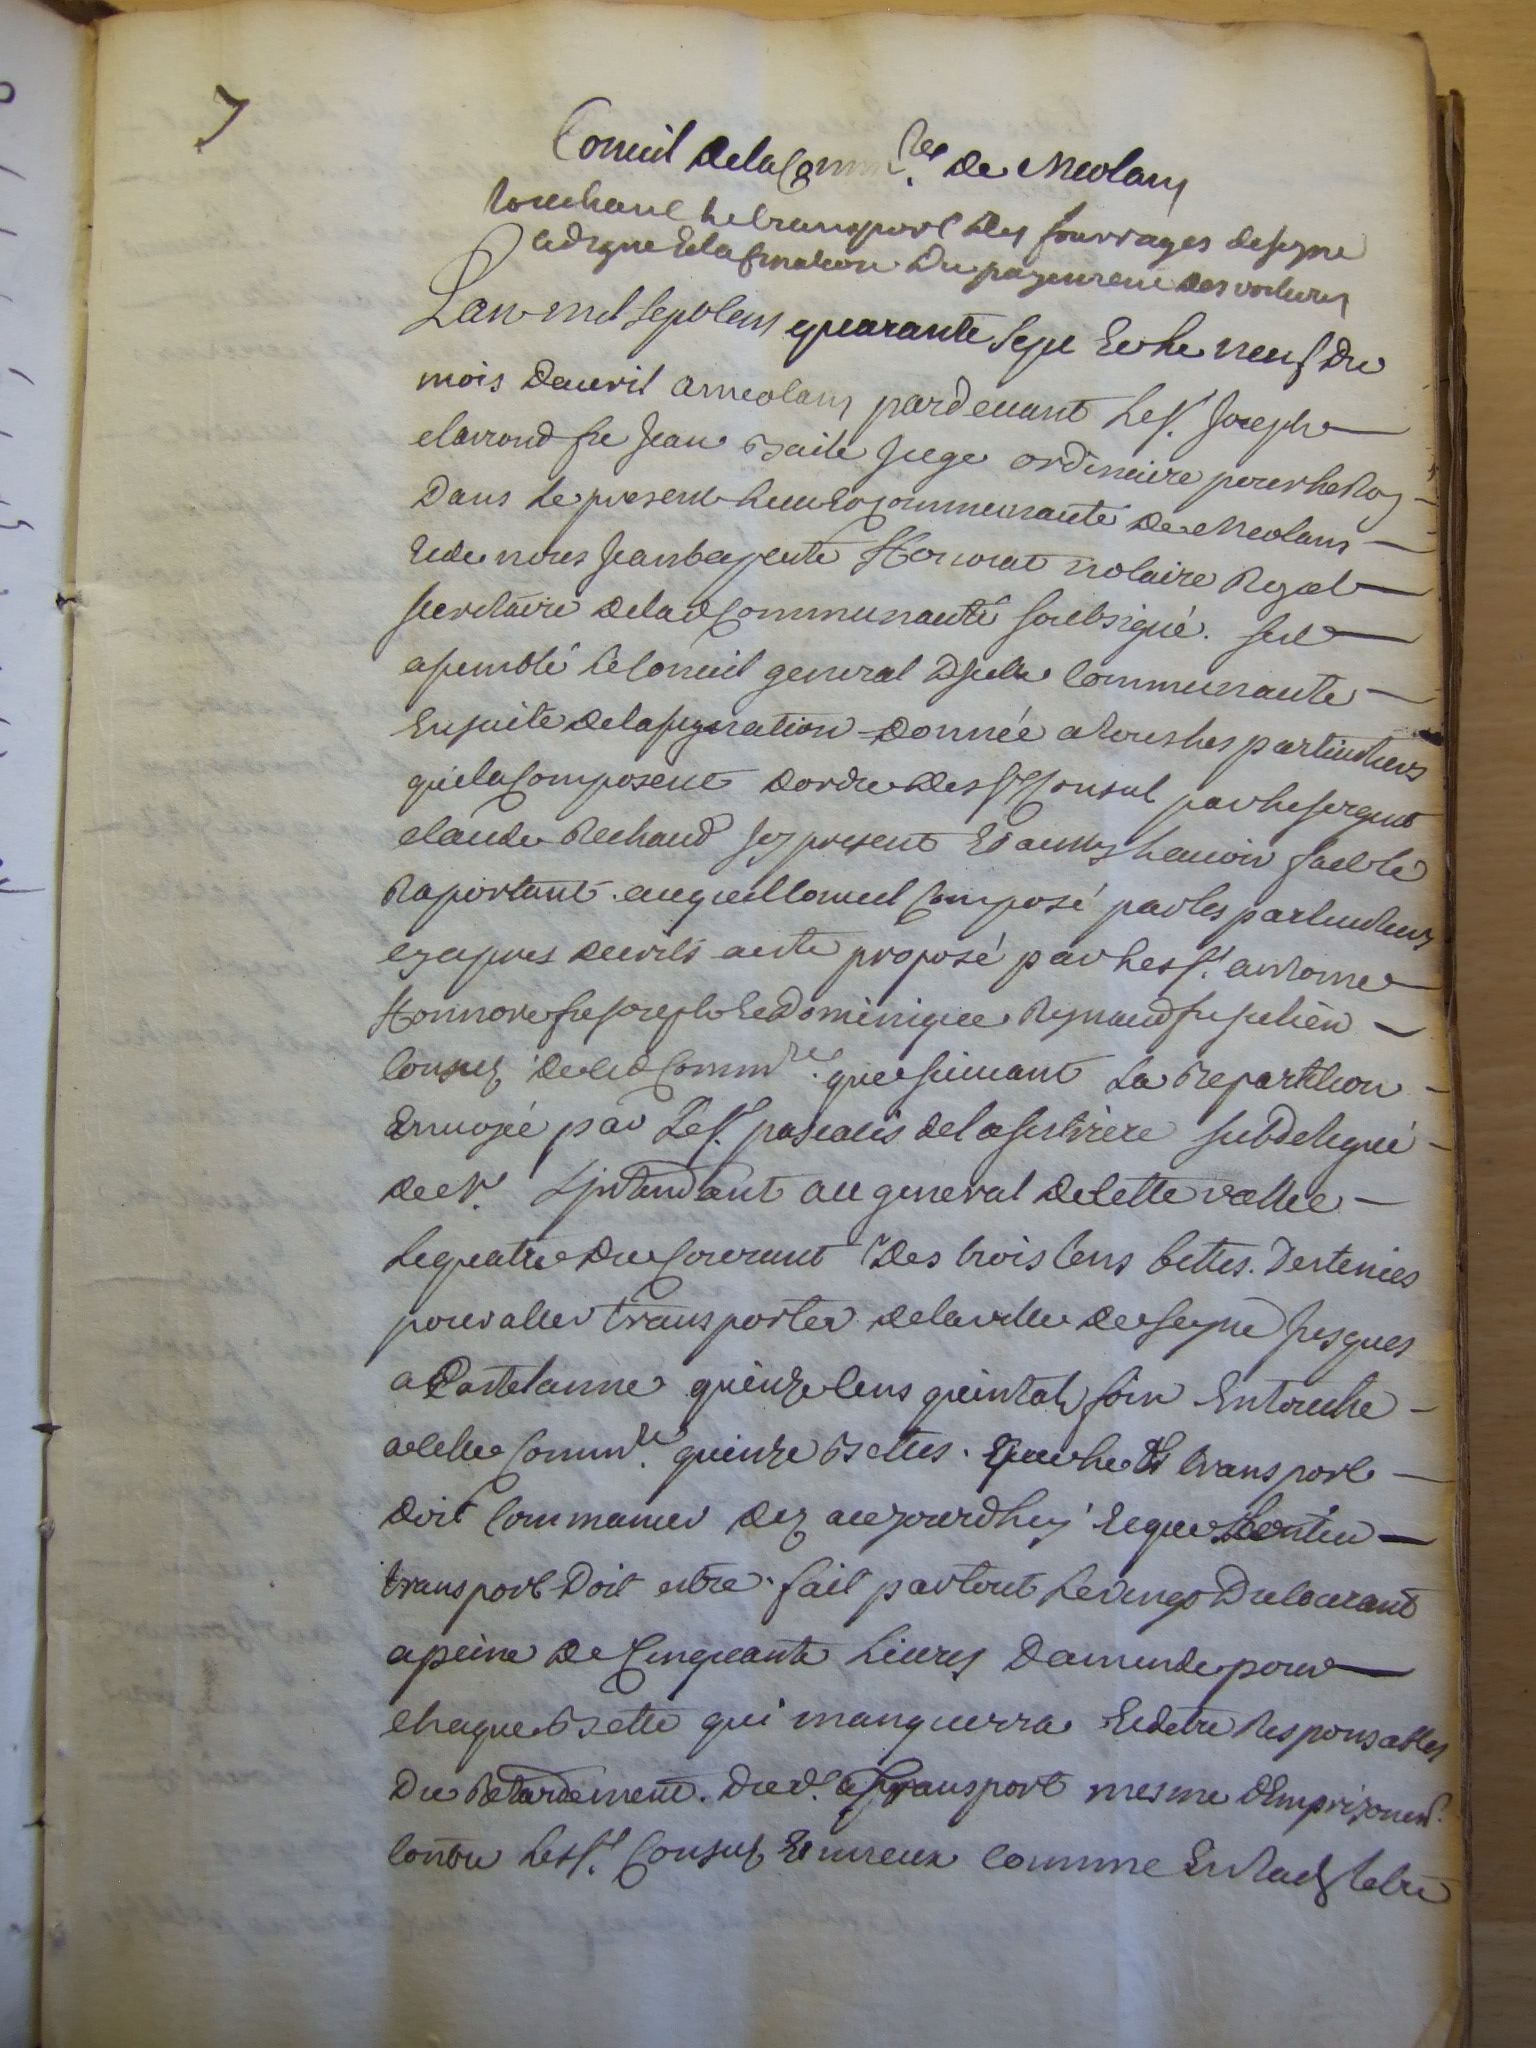 7
Conseil de la Comm.té de Meolans
touchant le transport des fourrages de seyne
a digne et la fixation du payement des voitures
L'an mil sept cens quarante sept et le neuf du
mois d'auril a meolans pardeuant le sr. Joseph
clariond fu Jean baile juge ordinaire pour le Roy
dans le present lieu et communauté de Meolans
et de nous Jean baptiste Honnorat notaire Royal
secretaire de lad communauté soubsigné. s'est
assemblé le conseil general d'jcelle communauté
ensuite de lassignation donnée a tous les particuliers
qui la composent d'ordre des srs Consul par le sergent
claude Rechaud jcy present et ainsy lauoir fait le
Raportant. auquel conseil composé par les particuliers
cy apres decrits a esté proposé par les srs. antoine
Honnoré fu joseph et Dominique Reynaud fu julien
consuls de lad comm.té que suiuant la repartition
enuoyée par Le sr. pascalis de la sestriere subdelegué
de Mr. L'jntandant au general de cette vallée
le quatre du courant des trois cens bettes. destenées
pour aller transporter de la ville de seyne jusques
a Castelanne quinze cens quintals foin en touche
a cette comm.té quinze bettes. que le d transport
doit commancer dez aujourdhuy et que l'entier
transport doit estre fait par tout le vingt du courant
a peine de Cinquante Liures damende pour
chaque bette qui manquerra et detre Responsables
du Retardement. du d. transport mesme d'Emprizonemt.
contre les srs. Consuls et mieux comme en lad lettre